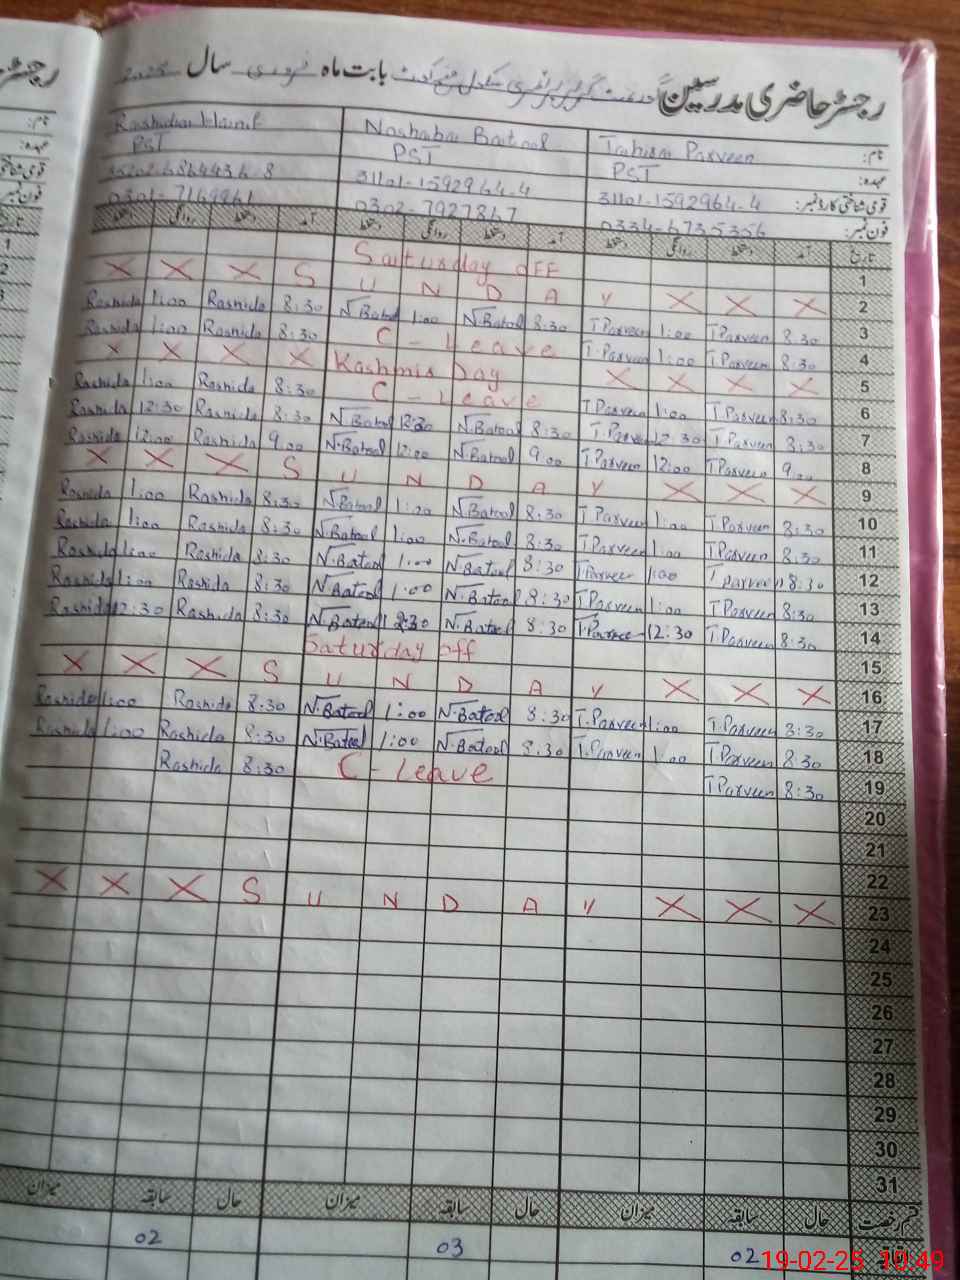 رجسٹر حاضری مدرسین گورنمنٹ گرلز پرائمری سکول بابت ماہ فروری سال
نام: Tahira Parveen Noshaba Batool Rashida Hanif
عہدہ: PST PST PST
قومی شناختی کارڈ نمبر: 31101-1592964-4 31101-1592964-4
فون نمبر: 0334-6735356 0302-7927867 0301-7169961
تاریخ آمد دستخط روانگی دستخط آمد دستخط روانگی دستخط آمد دستخط روانگی دستخط
1 Saturday off
2 X X X S U N D A Y X X X
3 Rashida 1:00 Rashida 8:30 N.Batool 1:00 N.Batool 8:30 T.Parveen 1:00 T.Parveen 8:30
4 Rashida 1:00 Rashida 8:30 C-Leave T.Parveen 1:00 T.Parveen 8:30
5 X X X X Kashmir Day X X X X
6 Rashida 1:00 Rashida 8:30 C-Leave T.Parveen 1:00 T.Parveen 8:30
7 Rashida 12:30 Rashida 8:30 N.Batool 12:30 N.Batool 8:30 T.Parveen 12:30 T.Parveen 8:30
8 Rashida 12:00 Rashida 9.00 N.Batool 12:00 N.Batool 9.00 T.Parveen 12:00 T.Parveen 9.00
9 X X X S U N D A Y X X X
10 Rashida 1:00 Rashida 8:30 N.Batool 1:00 N.Batool 8:30 T.Parveen 1:00 T.Parveen 8:30
11 Rashida 1:00 Rashida 8:30 N.Batool 1:00 N.Batool 8:30 T.Parveen 1:00 T.Parveen 8:30
12 Rashida 1:00 Rashida 8:30 N.Batool 1:00 N.Batool 8:30 T.Parveen 1:00 T.Parveen 8:30
13 Rashida 1:00 Rashida 8:30 N.Batool 1:00 N.Batool 8:30 T.Parveen 1:00 T.Parveen 8:30
14 Rashida 12:30 Rashida 8:30 N.Batool 12:30 N.Batool 8:30 T.Parveen 12:30 T.Parveen 8:30
15 Saturday off
16 X X X S U N D A Y X X X
17 Rashida 1:00 Rashida 8:30 N.Batool 1:00 N.Batool 8:30 T.Parveen 1:00 T.Parveen 8:30
18 Rashida 1:00 Rashida 8:30 N.Batool 1:00 N.Batool 8:30 T.Parveen 1:00 T.Parveen 8:30
19 Rashida 8:30 C-Leave T.Parveen 8:30
20
21
22
23 X X X S U N D A Y X X X
24
25
26
27
28
29
30
31
قسم رخصت حال سابقہ میزان حال سابقہ میزان حال سابقہ میزان
02 03 02
19-02-25 10:49